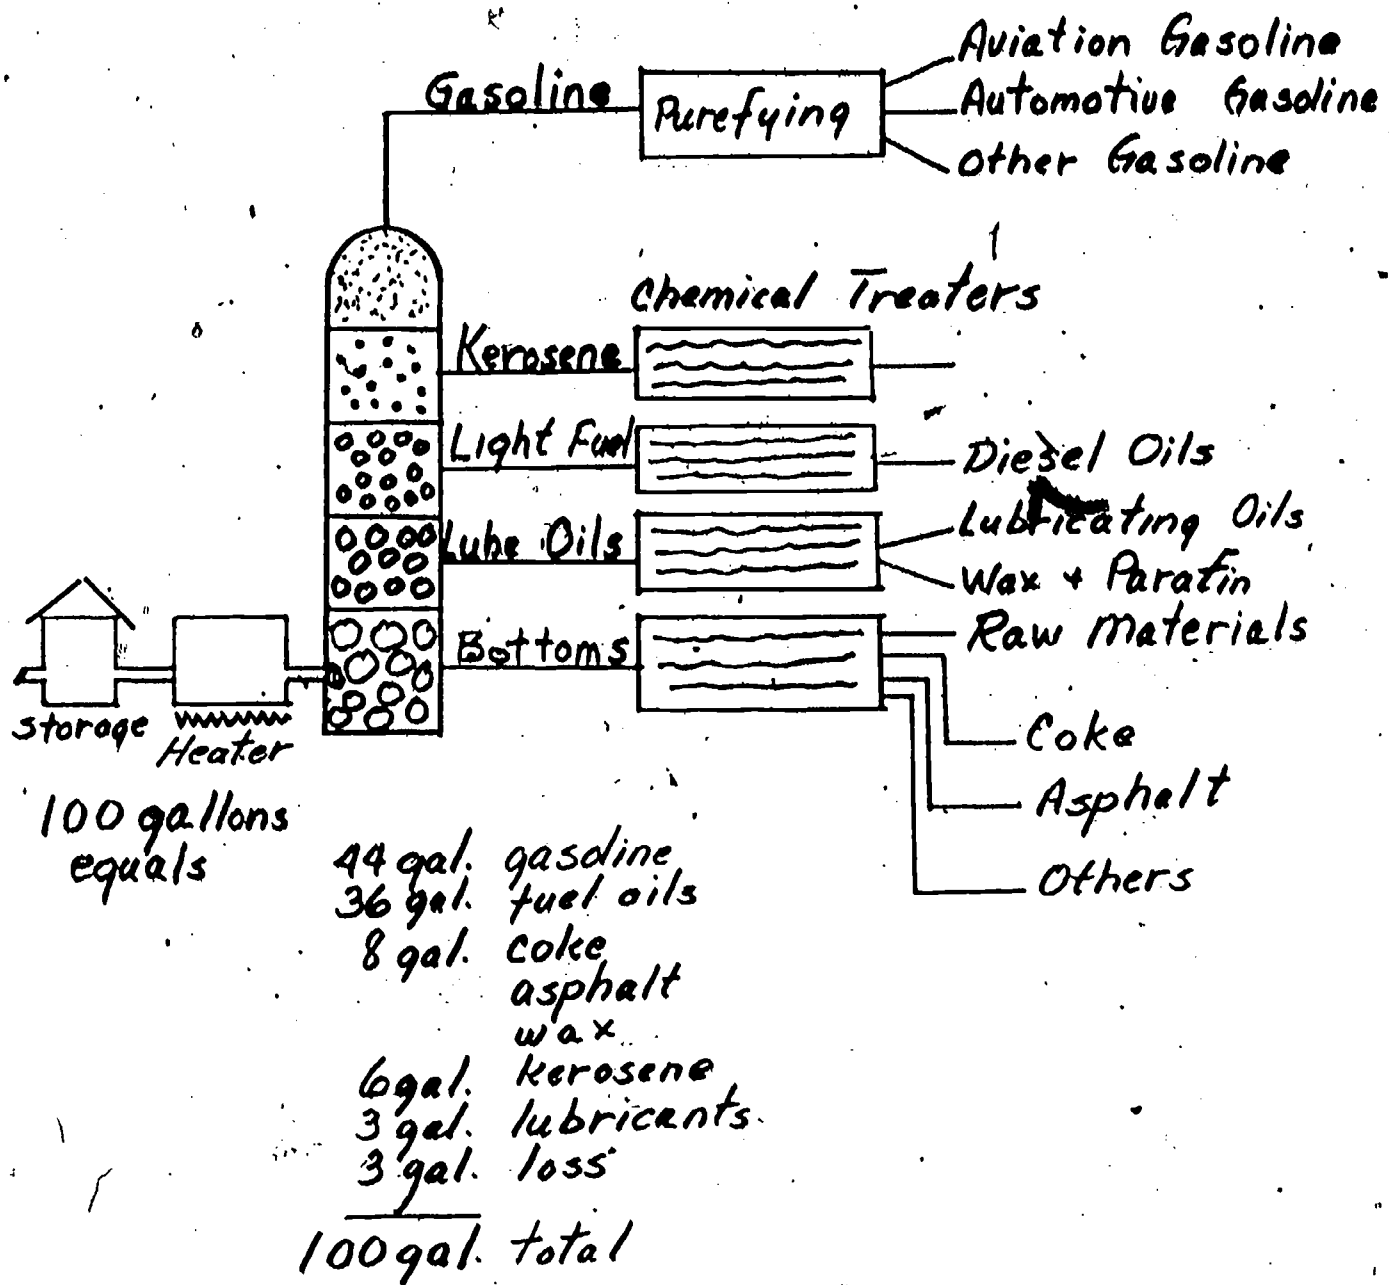 Gasoline
Purefying
Aviation Gasoline
Automotive Gasoline
Other Gasoline
Chemical Treaters
Kerosene
Light Fuel
Diesel Oils
Lube Oils
Lubricating Oils
Wax + Parafin
Bottoms
Raw Materials
Coke
Asphalt
Others
Storage
Heater
100 gallons
equals
44 gal. gasoline
36 gal. fuel oils
8 gal. coke
asphalt
wax
6 gal. kerosene
3 gal. lubricants
3 gal. loss
100 gal. total